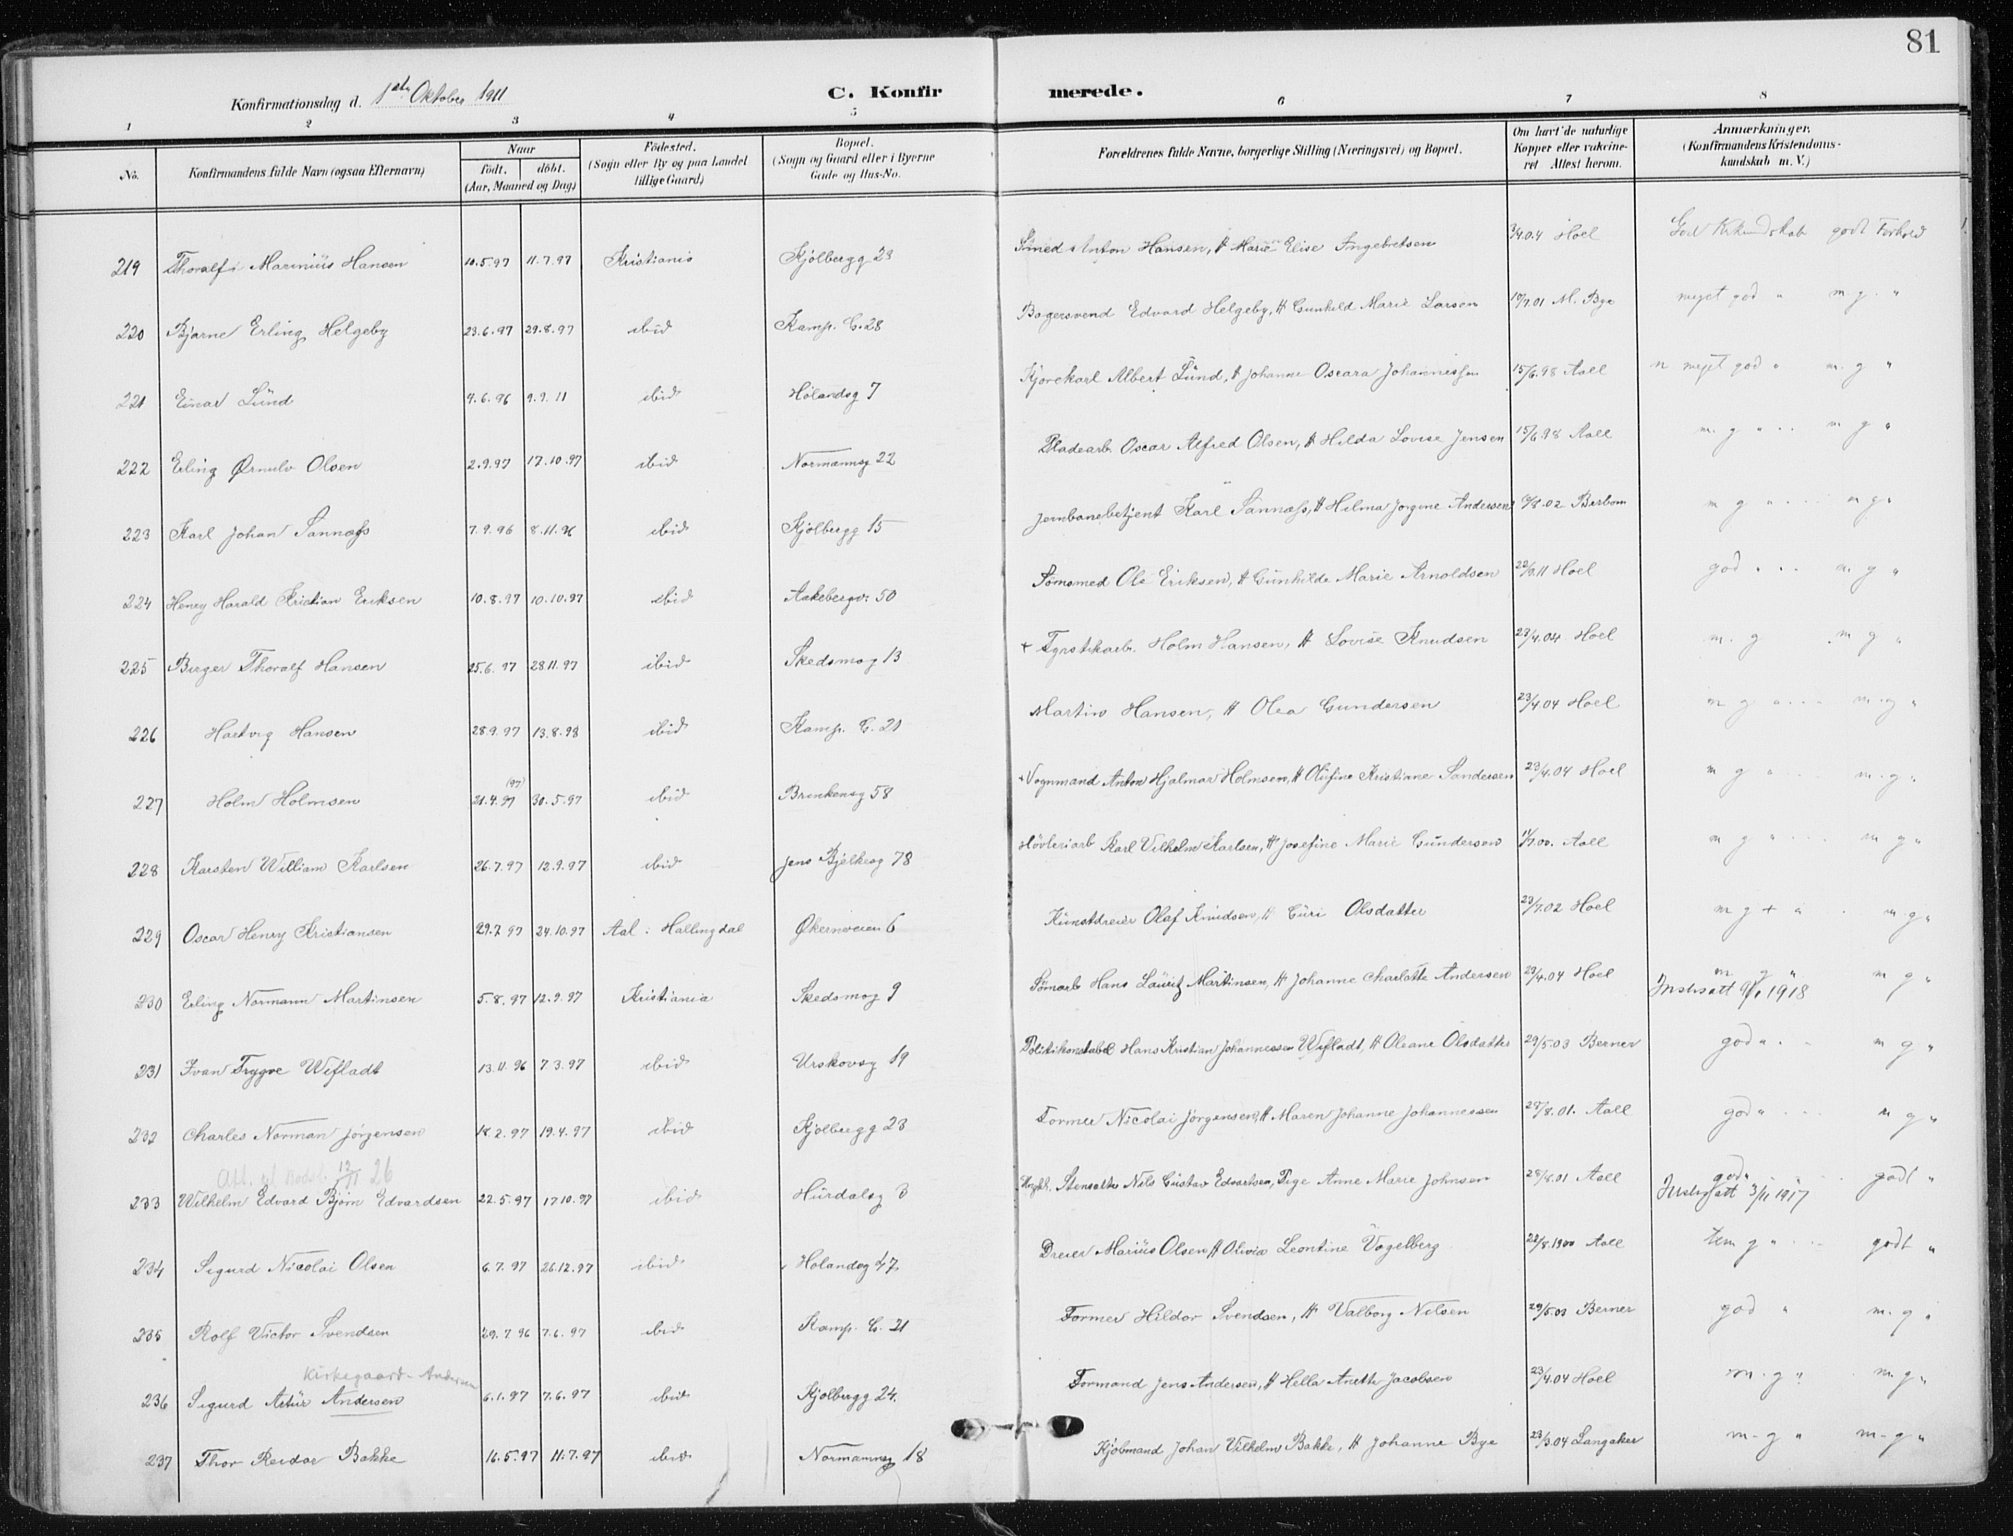 81
Konfirmationsdag d. 1ste Oktober 1911
C. Konfirmerede.
1 2 3 4 5 6 7 8
No. Konfirmandens fulde Navn (ogsaa Efternavn) Naar født, døbt. (Aar, Maaned og Dag) Fødested. (Sogn eller By og paa Landet tillige Gaard) Bopæl. (Sogn og Gaard eller i Byerne Gade og Hus-No. Forældrenes fulde Navne, borgerlige Stilling (Næringsvei) og Bopæl. Om havt de naturlige Kopper eller vaccineret Attest herom. Anmærkninger. (Konfirmandens Kristendomskundskab m. V.)
219 Thoralf Marinius Hansen 10.5.97 11.7.97 Kristiania Kjølbergg 23 Smed Anton Hansen, H Marie Elise Ingebretsen 3/4.04 Hoel God Kr.kundskab godt Forhold
220 Bjarne Erling Helgeby 23.6.97 29.8.97 ibid Kamp. G. 28 Bagersvend Edvard Helgeby, H Gunhild Marie Larsen M. Bye meget god " m g. "
221 Einar Lund 4.6.96 9.9.11 ibid Hølandsg 7 Kjørekarl Albert Lund, H Johanne Oscara Johannessen 15/6.98 Aall meget god " m. g "
222 Erling Ørnulv Olsen 2.9.97 17.10.97 ibid Normannsg 22 Pladearb. Oscar Alfred Olsen, H Hilda Lovise Jensen 15/6.98 Aall m. g " m g "
223 Karl Johan Sannæss 7.9.96 8.11.96 ibid Kjølbergg 15 Jernbanebetjent Karl Sannæss, H Hilma Jørgine Andersen 8.02 Berbom m g " m g "
224 Henry Harald Kristian Eriksen 10.8.97 10.10.97 ibid Aakebergv. 50 Sømsmed Ole Eriksen, H Gunhilde Marie Arnoldsen 22/9.11 Hoel god " m g "
225 Birger Thoralf Hansen 25.6.97 28.11.97 ibid Skedsmog 13 + Fyrstikarb. Holm Hansen, H Lovise Knudsen 23/4.04 Hoel m. g m g "
226 Hartvig Hansen 28.9.97 13.8.98 ibid Kamp. G. 21 Martin Hansen, H Olea Gundersen 23/4.04 Hoel m g " m. g "
227 Holm Holmsen (97) 21.4.97 30.5.97 ibid Brinkensg 58 Vognmand Anton Hjalmar Holmsen, H Olufine Kristiane Sandersen 23/4.04 Hoel m g " m. g "
228 Karsten William Karlsen 26.7.97 12.9.97 ibid Jens Bjelkesg 78 Høvleriarb Karl Vilhelm Karlsen, H Josefine Marie Gundersen Aall m g " m g "
229 Oscar Henry Kristiansen 29.7.97 24.10.97 Aal i Hallingdal Økernveien 6 Kunstdreier Olaf Knudsen, H Guri Olsdatter 23/7.02 Hoel m g + " m g "
230 Erling Normann Martinsen 5.8.97 12.9.97 Kristiania Skedsmog 9 Sømarb Hans Lauritz Martinsen, H Johanne Charlotte Andersen 29/4.04 Hoel m g " m g "
1918
231 Ivan Trygve Wefladt 13.11.96 7.3.97 ibid Urskovsg 19 Politikonstabel Hans Kristian Johannessen Wefladt, H Oleane Olsdatter 29/5.03 Berner god " m g "
232 Charles Norman Jørgensen 18.2.97 19.4.97 ibid Kjølbergg 23 Former Nicolai Jørgensen, H Maren Johanne Johannessen 28/8.01. Aall god " m g "
12/11 26
233 Wilhelm Edvard Bjørn Edvardsen 22.5.97 17.10.97 ibid Hurdalsg 3 Stensætter Nils Gustav Edvartsen, Pige Anne Marie Johnsen 28/8.01 Aall god " godt "
3/11 1917
234 Sigurd Nicolai Olsen 6.7.97 26.12.97 ibid Hølandsg 47 Dreier Marius Olsen, H Olivia Leontine Vogelberg 22/8.1900 Aall tem g " godt "
235 Rolf Victor Svendsen 29.7.96 7.6.97 ibid Kamp. G. 21 Former Hildor Svendsen, H Valborg Nilsen 29/5.03 Berner god " m. g "
Kirkegaard-Andersen
236 Sigurd Artur Andersen 6.1.97 7.6.97 ibid Kjølbergg 24. Formand Jens Andersen, H Hella Anette Jacobsen 23/4.04 Hoel m. g " m g "
237 Thor Reidar Bakke 16.5.97 11.7.97 ibid Normannsg 18 Kjøbmand Johan Vilhelm Bakke, H Johanne Bye 23/3.04 Langaker m-g " m-g "